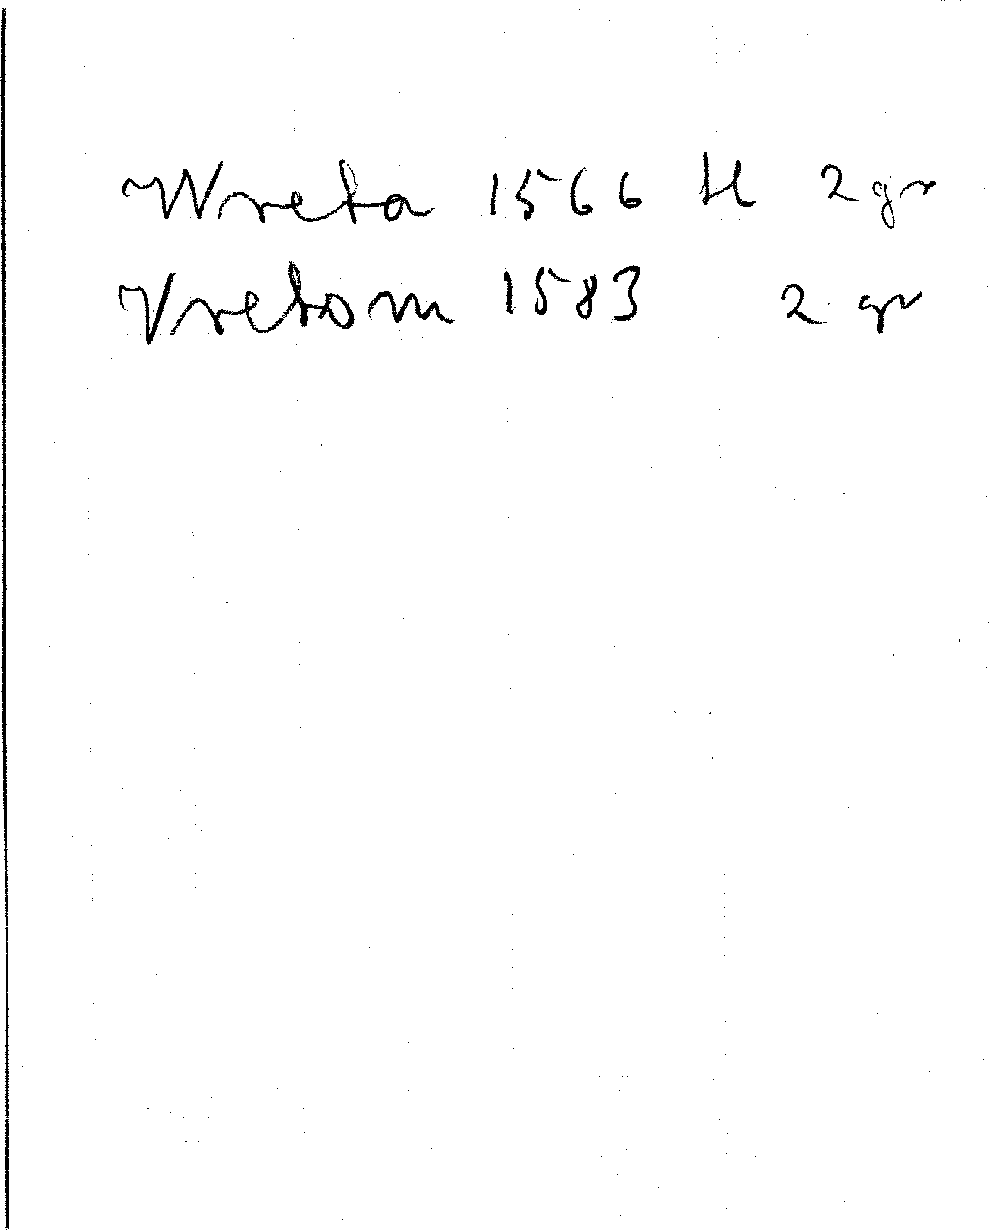 Wreta 1566 H 2 gr
Vretom 1583 2 gr